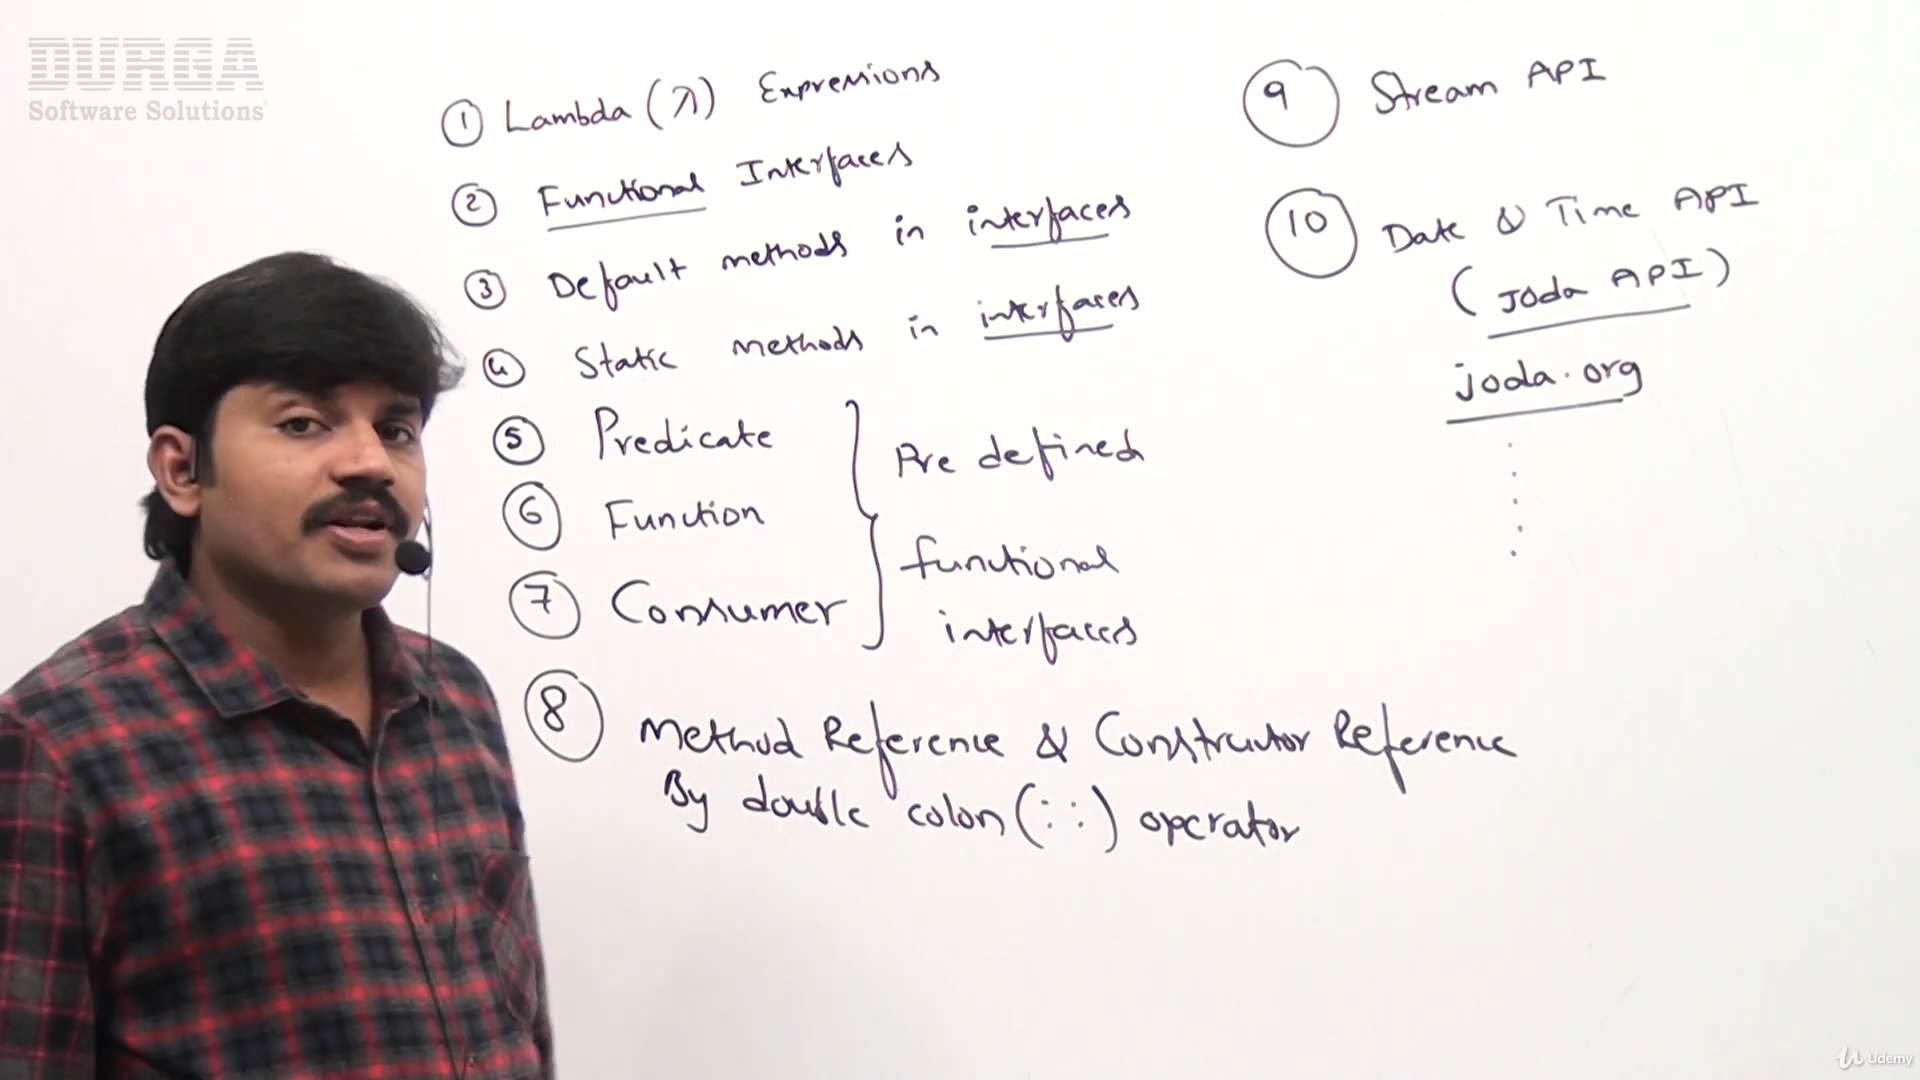 DURGA
Software Solutions
① Lambda (λ) Expressions
② Functional Interfaces
③ Default methods in interfaces
④ Static methods in interfaces
⑤ Predicate
⑥ Function
⑦ Consumer
Pre defined
functional
interfaces
⑧ Method Reference & Constructor Reference
By double colon (::) operator
⑨ Stream API
⑩ Date & Time API
(Joda API)
joda.org
Udemy